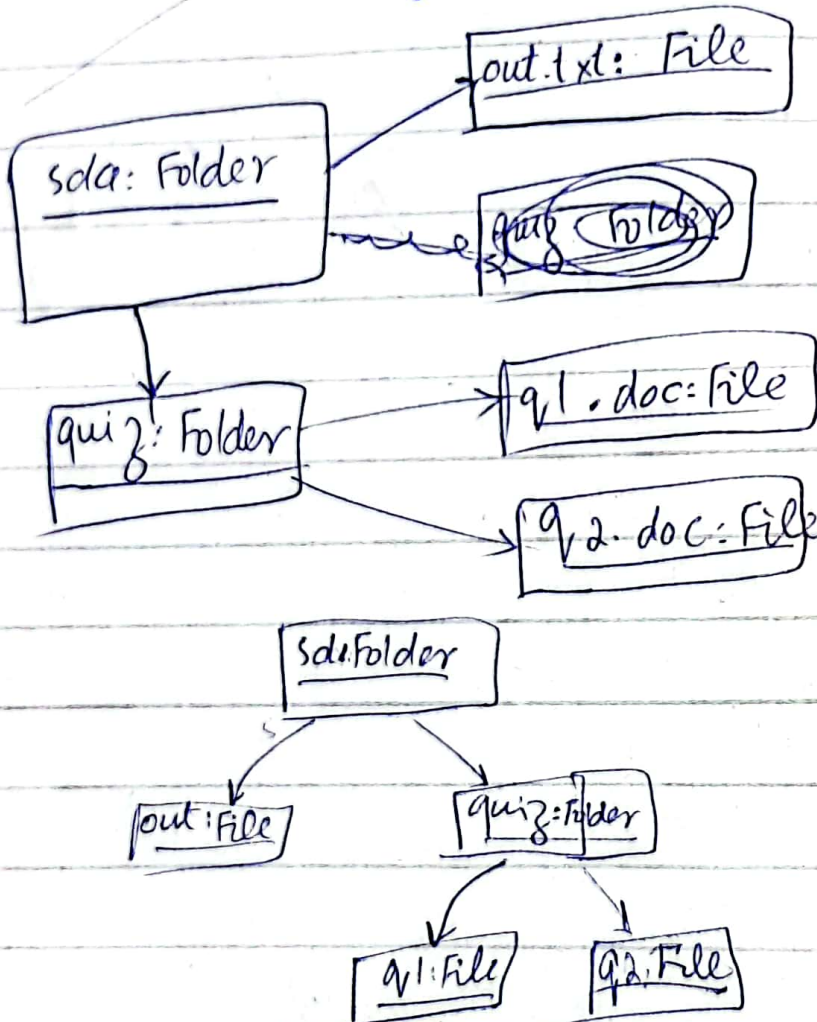 out.txt: File
sda: Folder
quiz Folder
quiz: Folder
q1.doc: File
q2.doc: File
sda:Folder
out:File
quiz:Folder
q1:File
q2:File